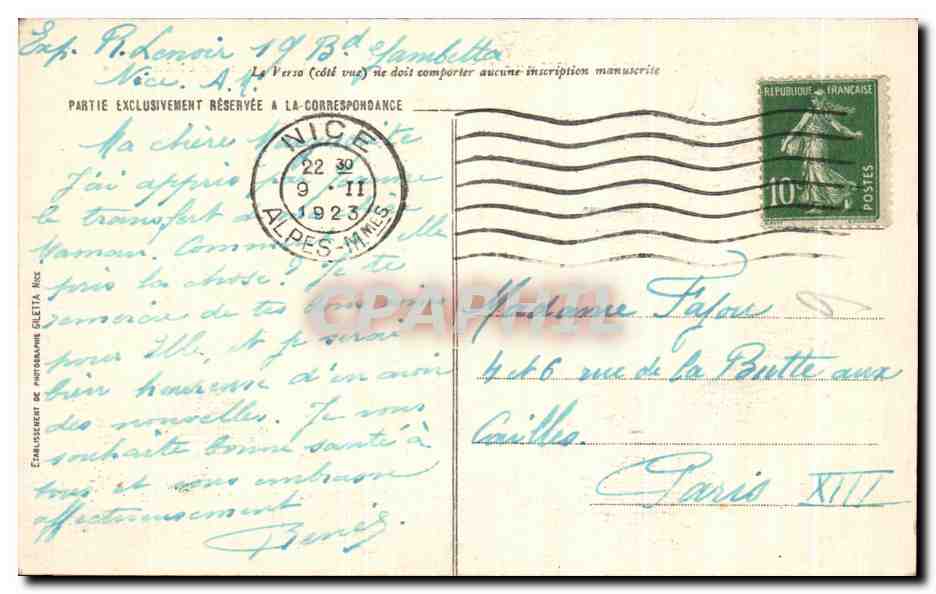 Exp. R. Lenoir 19 Bd Gambetta
Nice. A. M.
Le Verso (côté vue) ne doit comporter aucune inscription manuscrite
PARTIE EXCLUSIVEMENT RÉSERVÉE A LA CORRESPONDANCE
NICE
22 30
9 · II
1923
ALPES-MMES
RÉPUBLIQUE FRANÇAISE
10
POSTES
Ma chère
J'ai appris
le transfort
Maman. Comment elle
pris la chose? Je te
remercie de tes bons
pour Elle, et je serai
bien heureuse d'en avoir
des nouvelles. Je vous
souhaite bonne santé à
tous et vous embrasse
affectueusement
Renée
CPAPHIL
Madame Fajou
4 et 6 rue de la Butte aux
Cailles.
Paris XIII
ETABLISSEMENT DE PHOTOGRAPHIE GILETTA NICE